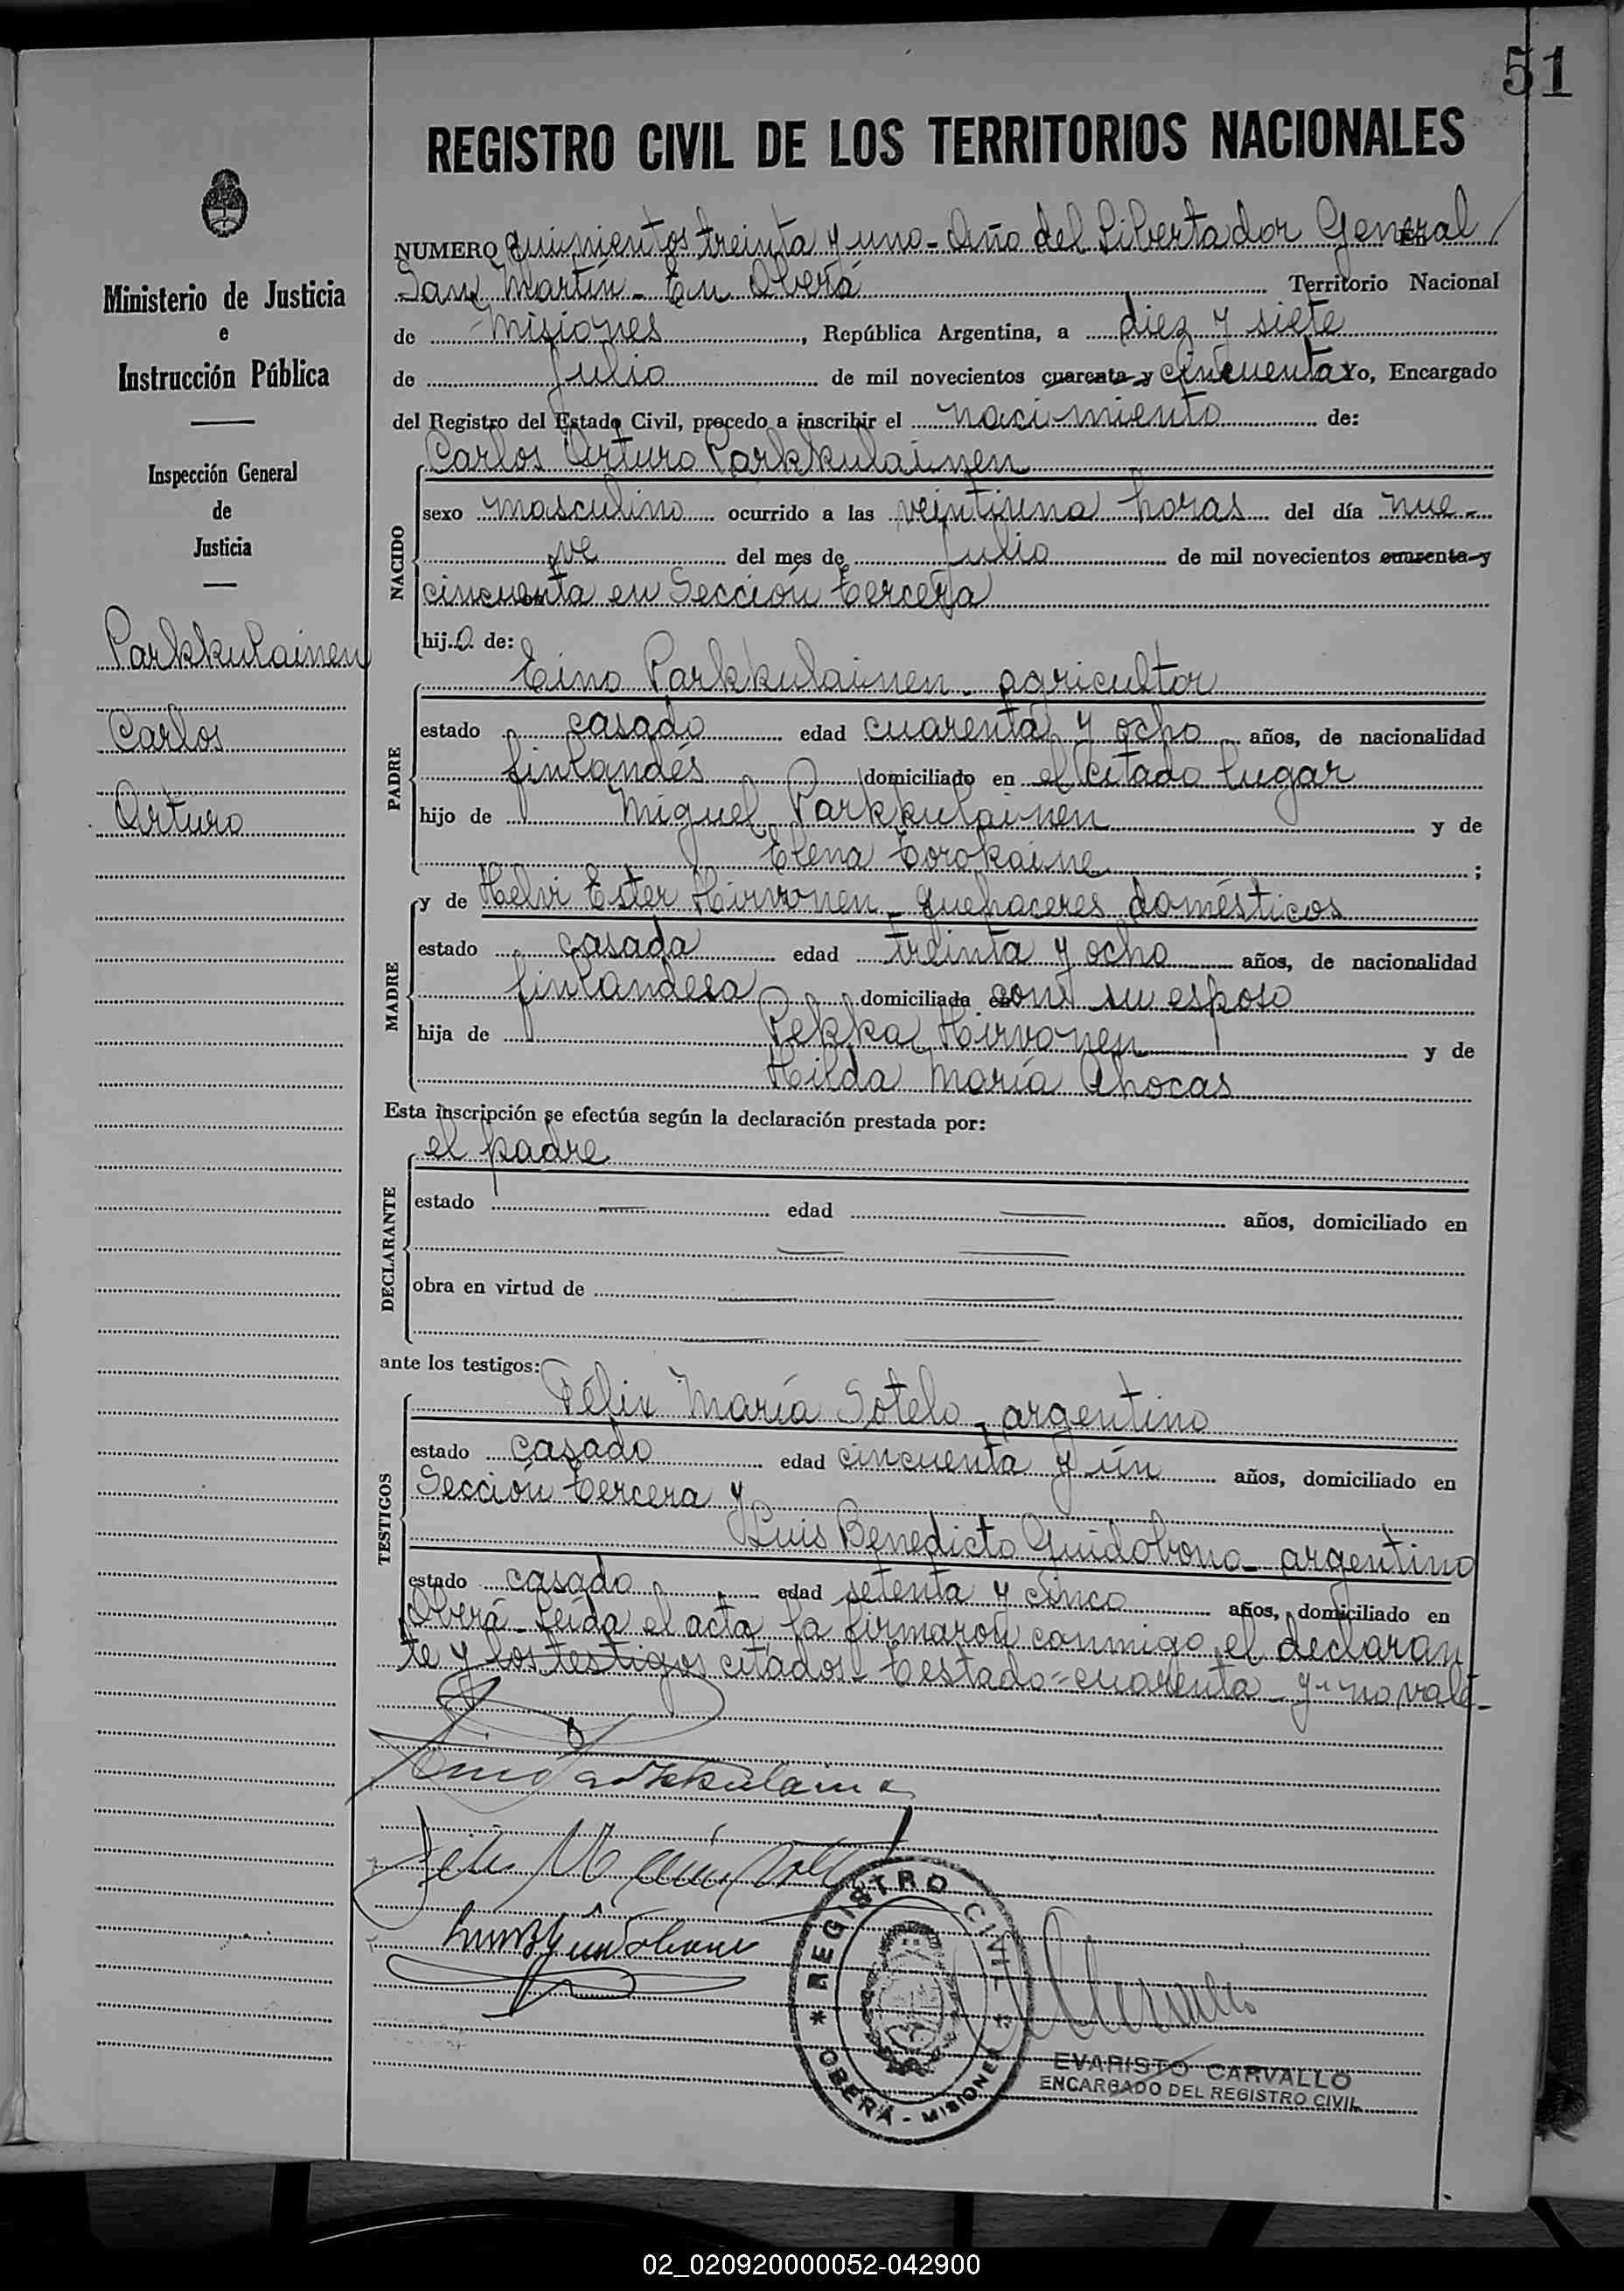 51
REGISTRO CIVIL DE LOS TERRITORIOS NACIONALES
Ministerio de Justicia
e
Instrucción Pública
Inspección General
de
Justicia
Parkkulainen
Carlos
Arturo
NUMERO quinientos treinta y uno - Año del Libertador General
San Martín - En Oberá Territorio Nacional
de Misiones, República Argentina, a diez y siete
de Julio de mil novecientos cuarenta y cincuenta Yo, Encargado
del Registro del Estado Civil, procedo a inscribir el nacimiento de:
NACIDO
Carlos Arturo Parkkulainen
sexo masculino ocurrido a las veintiuna horas del día nue-
ve del mes de Julio de mil novecientos cuarenta y
cincuenta en Sección tercera
hijo de:
PADRE
Eino Parkkulainen - agricultor
estado casado edad cuarenta y ocho años, de nacionalidad
finlandés domiciliado en el citado lugar
hijo de Miguel Parkkulainen y de
Elena Corokaine;
MADRE
y de Helvi Ester Hirvonen - quehaceres domésticos
estado casada edad treinta y ocho años, de nacionalidad
finlandesa domiciliada con su esposo
hija de Pekka Hirvonen y de
Hilda María Ahocas
Esta inscripción se efectúa según la declaración prestada por:
DECLARANTE
el padre
estado — edad — años, domiciliado en
— —
obra en virtud de — —
— —
ante los testigos:
TESTIGOS
Félix María Sotelo - argentino
estado casado edad cincuenta y un años, domiciliado en
Sección tercera y
Luis Benedicto Guidobono - argentino
estado casado edad setenta y cinco años, domiciliado en
Oberá - Leída el acta la firmaron conmigo el declaran
te y los testigos citados - Testado = cuarenta - y - no vale -
Eino Parkkulainen
REGISTRO CIVIL
* OBERÁ - MISIONES *
EVARISTO CARVALLO
ENCARGADO DEL REGISTRO CIVIL
02_020920000052-042900